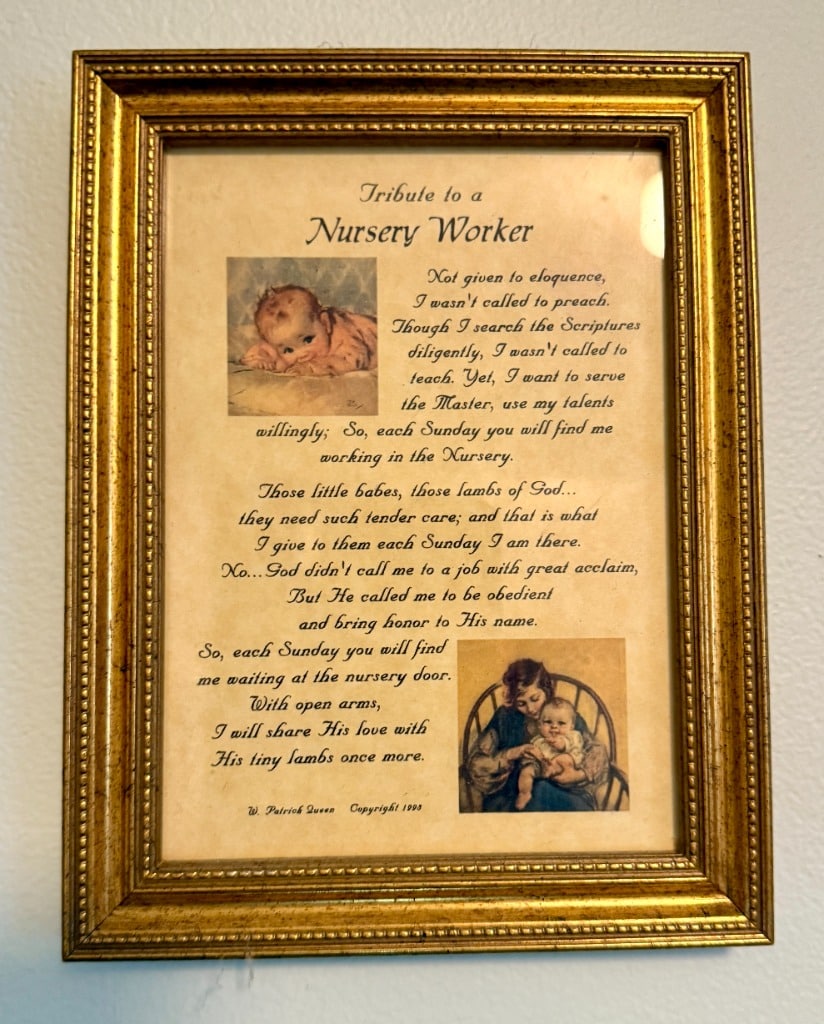 Tribute to a
Nursery Worker
Not given to eloquence,
I wasn't called to preach.
Though I search the Scriptures
diligently, I wasn't called to
teach. Yet, I want to serve
the Master, use my talents
willingly; So, each Sunday you will find me
working in the Nursery.
Those little babes, those lambs of God...
they need such tender care; and that is what
I give to them each Sunday I am there.
No...God didn't call me to a job with great acclaim,
But He called me to be obedient
and bring honor to His name.
So, each Sunday you will find
me waiting at the nursery door.
With open arms,
I will share His love with
His tiny lambs once more.
W. Patrick Queen Copyright 1998